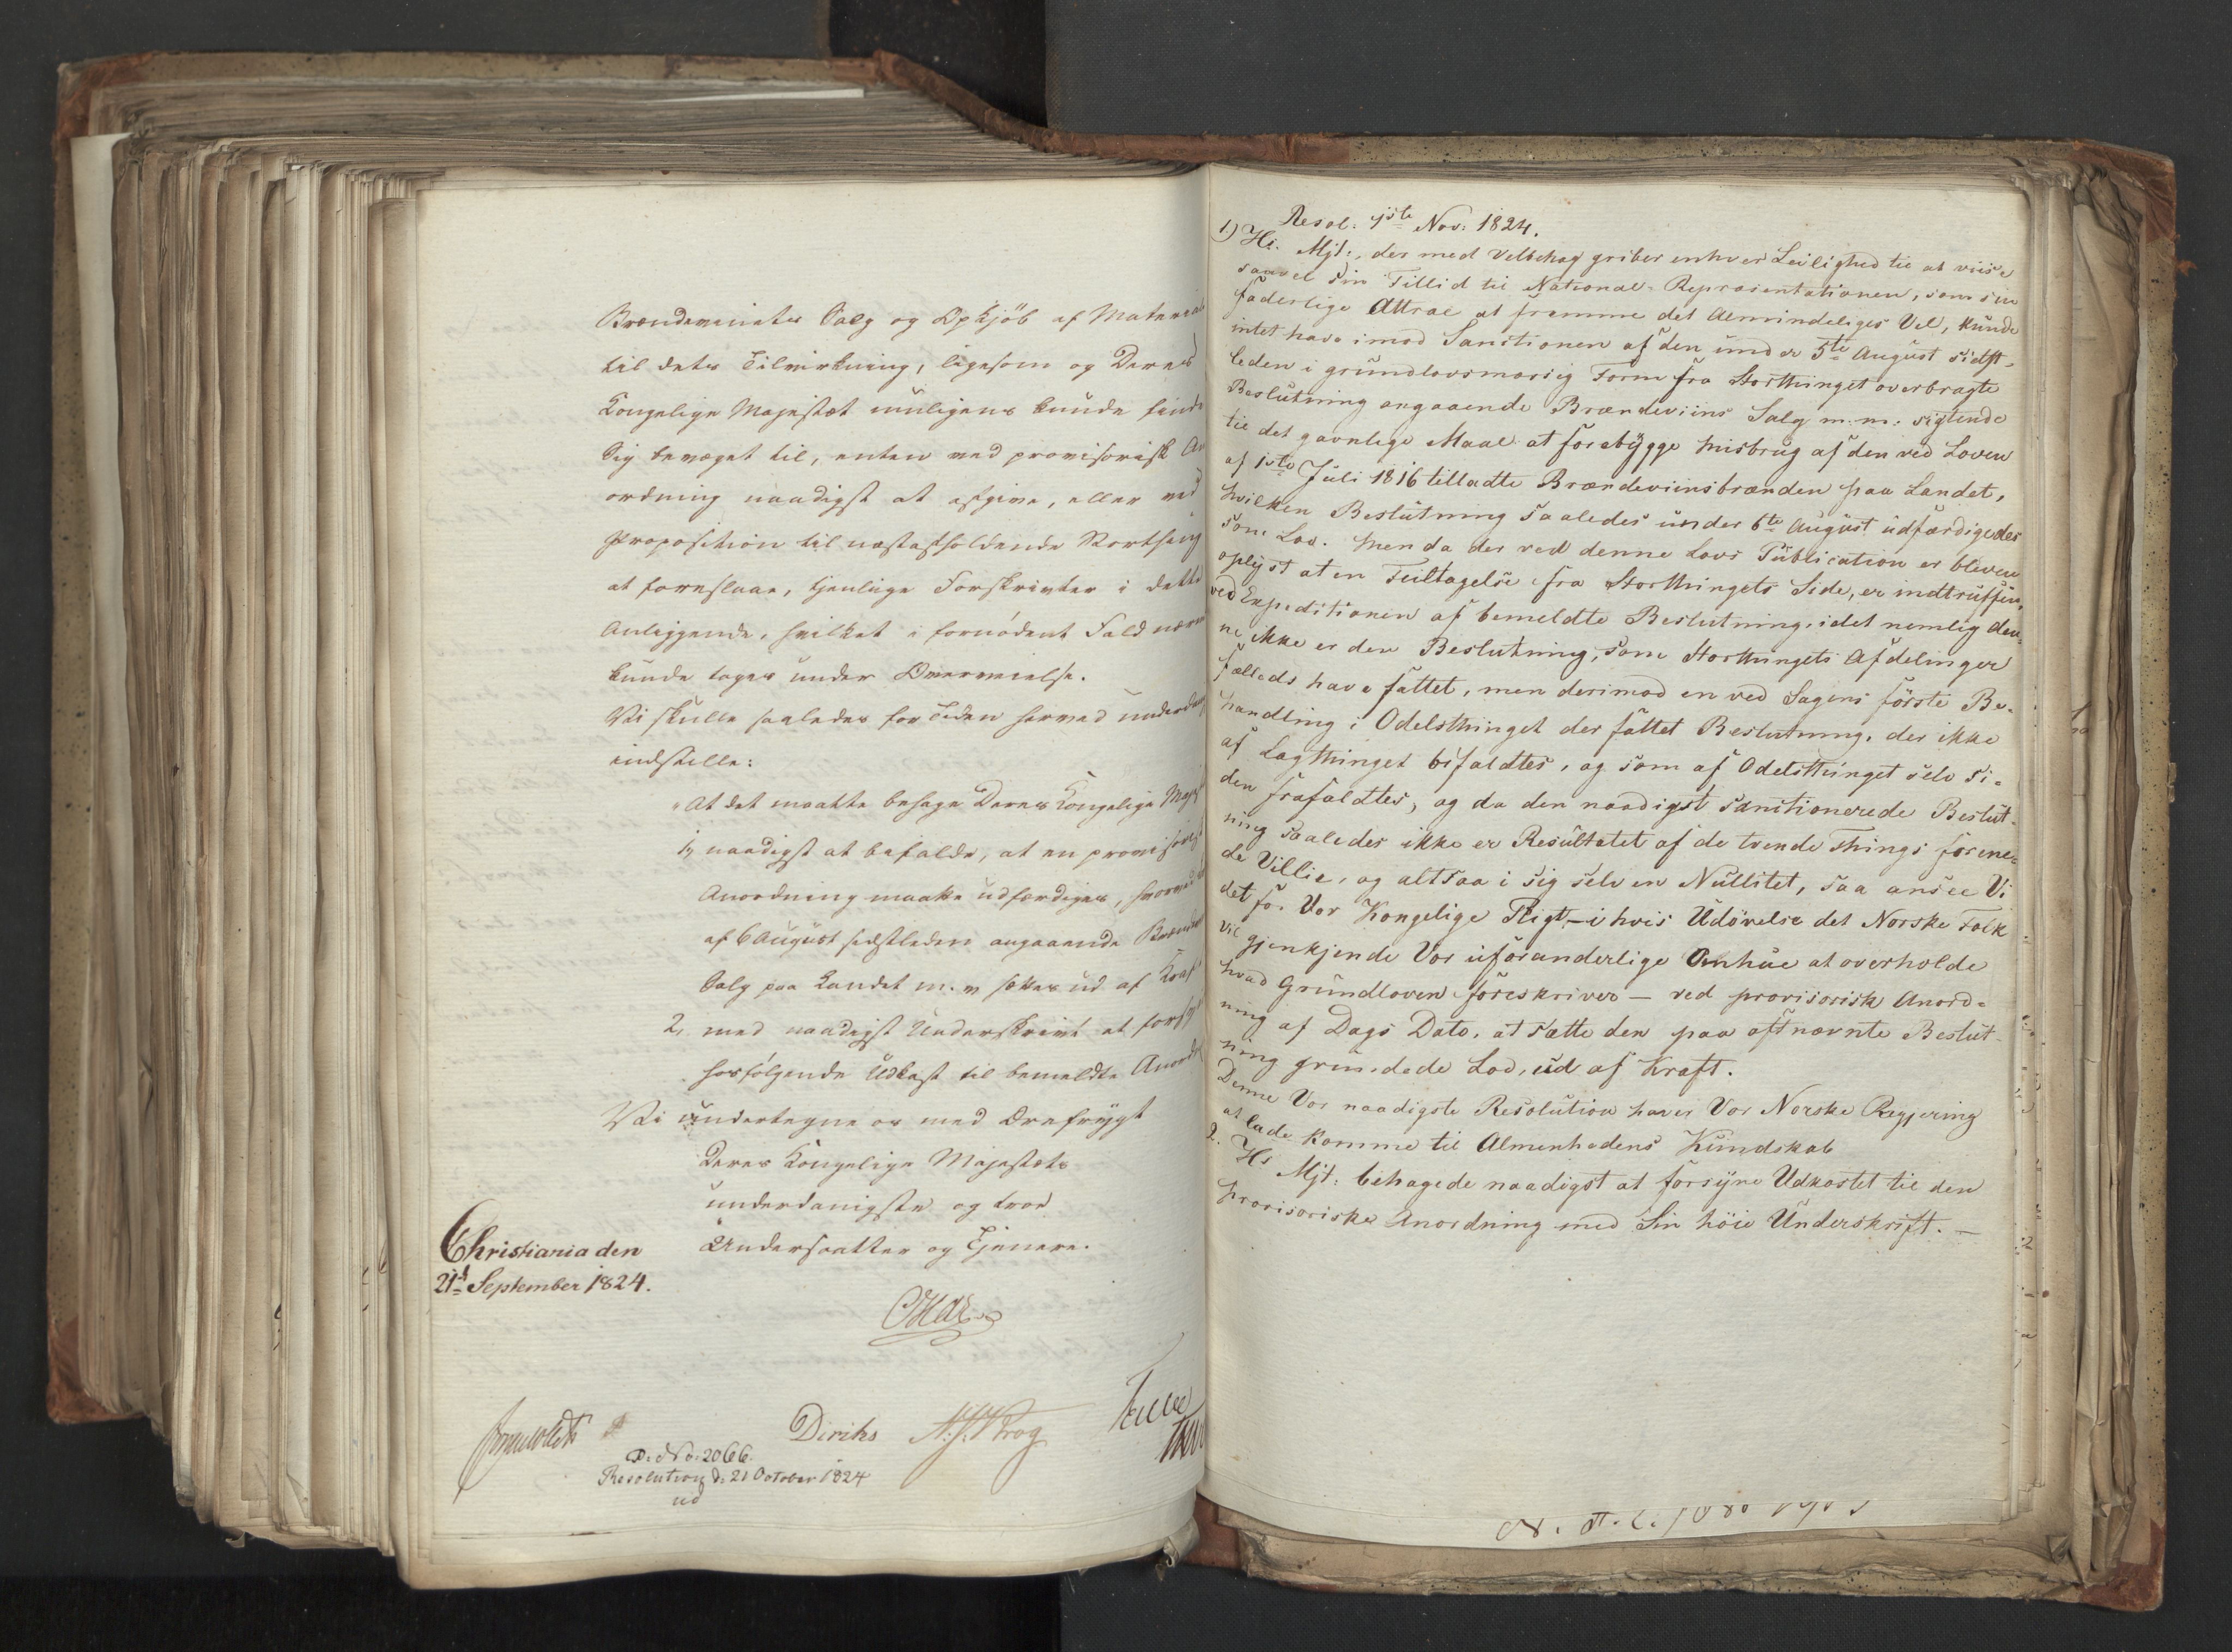 Brændeviinets Salg og Opkjöb af Material
til dets Tilvirkning, ligesom og Deres
Kongelige Majestæt muligens kunde finde
Sig bevæget til, enten ved provisorisk An
ordning naadigst at afgive, eller ved
Proposition til næstafholdende Storthing
at foreslaae, tjenlige Forskrivter i dette
Anliggende, hvilket i fornödent Fald nærm
kunde tages under Overveielse.
Vi skulle saaledes for Tiden herved underdan
indstille:
"At det maatte behage Deres Kongelige Maje
1, naadigst at befale, at en provisorisk
Anordning maatte udfærdiges, hvorved
af 6 August sidstleden angaaende Brænde
Salg paa Landet m. m sættes ud af Kraf
2, med naadigst Underskrivt at forsy
hosfölgende Udkast til bemeldte Anord
Vi undertegne os med Ærefrygt
Deres Kongelige Majestæts
underdanigste og troe
Undersaatter og Tjenere.
Christiania den
21d September 1824.
Diriks
Krog
D. No. 2066.
Resolution d. 21 October 1824
ud
Resol: 1ste Nov: 1824.
1) Hs. Mjt:, der med Velbehag griber enhver Leilighed til at viise
saavel Sin Tillid til National-Repræsentationen, som sin
faderlige Attraae at fremme det Almindeliges Vel, kunde
intet have imod Sanctionen af den under 5te August sidst-
leden i grundlovsmæssig Form fra Storthinget overbragte
Beslutning angaaende Brændeviins Salg m: m: sigtende
til det gavnlige Maal at forebygge Misbrug af den ved Loven
af 1ste Juli 1816 tilladte Brændeviinsbrænden paa Landet,
hvilken Beslutning saaledes under 6te August udfærdigedes
som Lov. Men da der ved denne Lovs Publication er bleven
oplyst at en Feiltagelse fra Storthingets Side, er indtruffen,
ved Expeditionen af bemeldte Beslutning, idet nemlig den-
ne ikke er den Beslutning, som Storthingets Afdelinger
fælleds have fattet, men derimod en ved Sagens förste Be-
handling i Odelsthinget der fattet Beslutning, der ikke
af Lagthinget bifaldtes, og som af Odelsthinget selv si-
den frafaldtes, og da den naadigst sanctionerede Beslut-
ning saaledes ikke er Resultatet af de tvende Things forene-
de Villie, og altsaa i sig selv en Nullitet, saa ansee Vi
det for Vor Kongelige Pligt – i hvis Udövelse det Norske Folk
vil gjenkjende Vor uforanderlige Omhue at overholde
hvad Grundloven foreskriver – ved provisorisk Anord-
ning af Dags Dato, at sætte den paa oftnævnte Beslut-
ning grundede Lov, ud af Kraft.
Denne Vor naadigste Resolution haver Vor Norske Regjering
at lade komme til Almenhedens Kundskab
2. Hs Mjt: behagede naadigst at forsyne Udkastet til den
provisoriske Anordning med Sin höie Underskrift. –